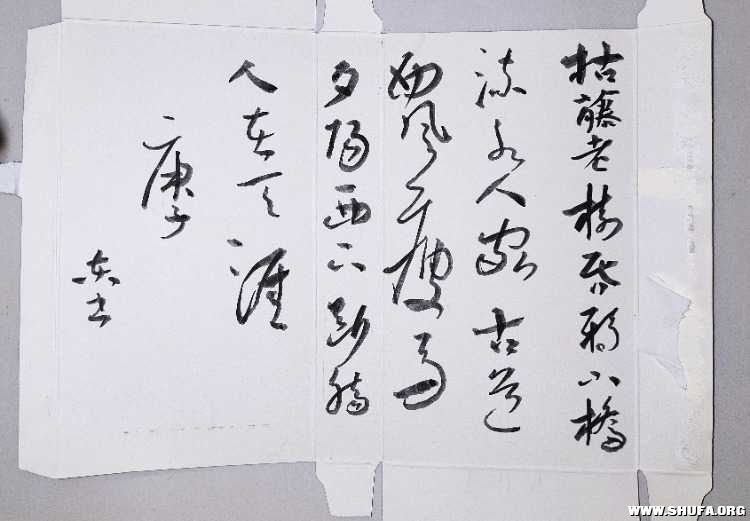 枯藤老樹昏鴉小橋
流水人家古道
西風瘦馬
夕陽西下斷腸
人在天涯
庚子
书
WWW.SHUFA.ORG